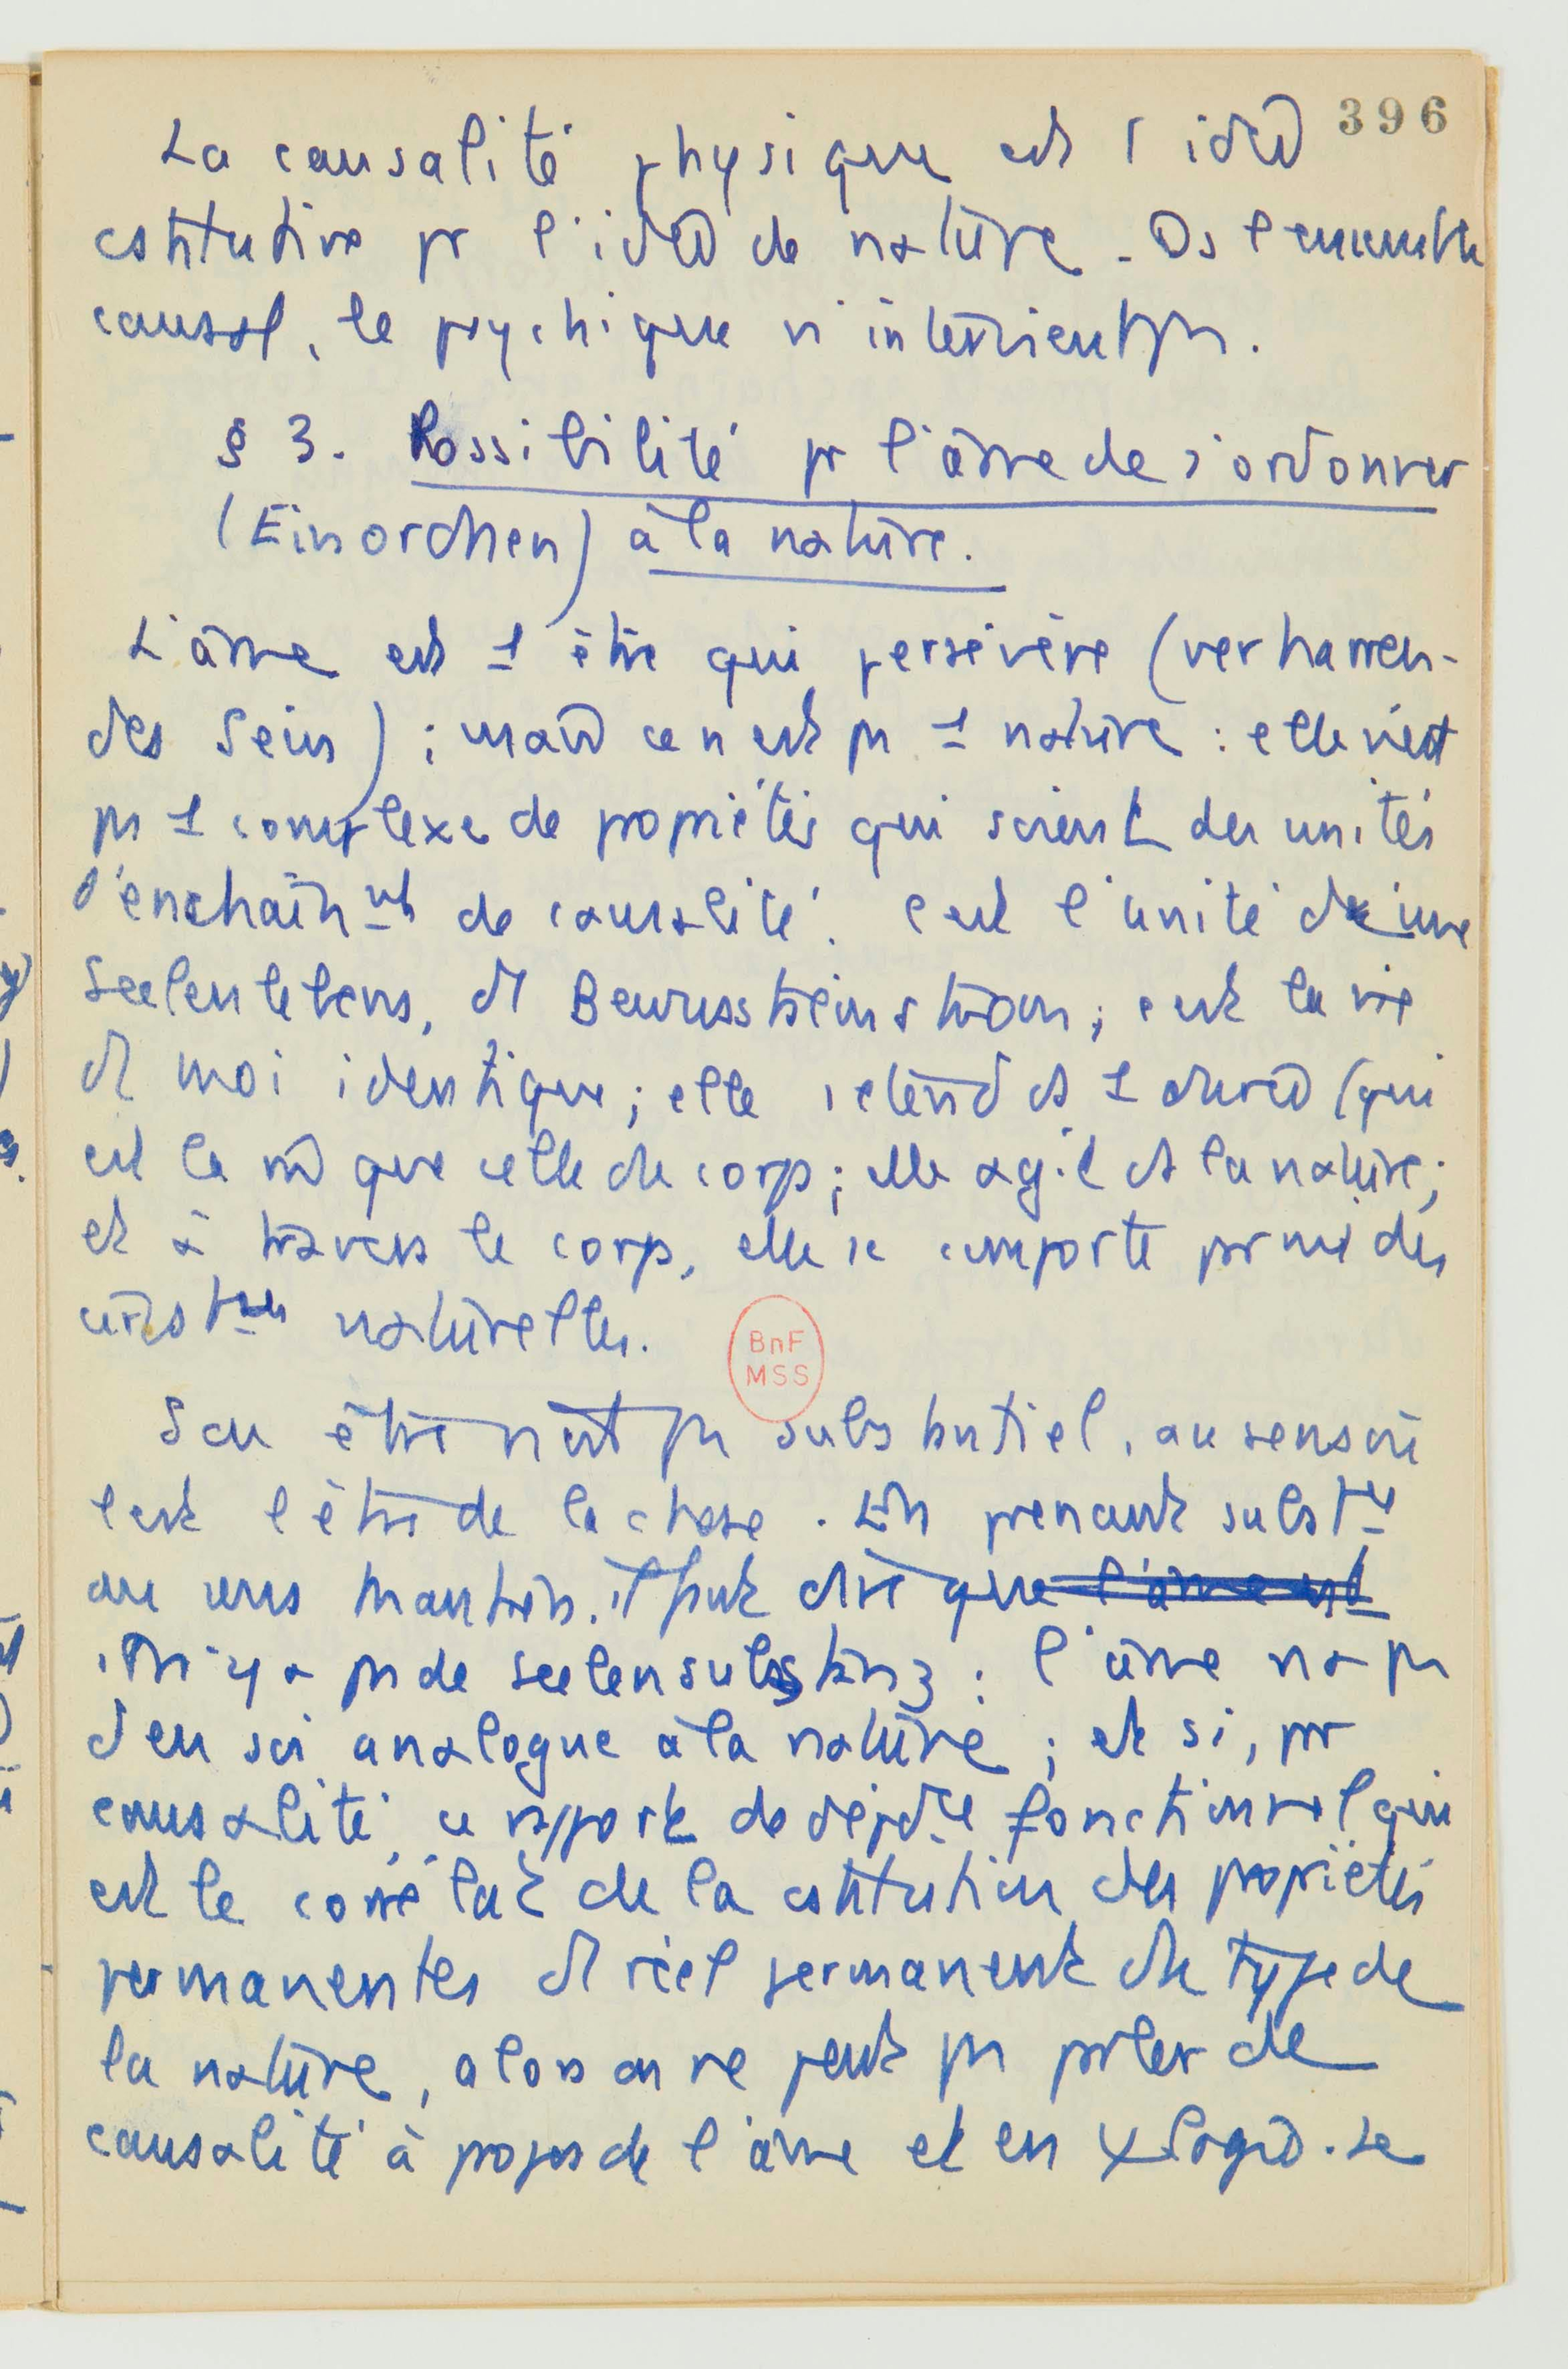 396
La causalité physique est l'idée
cstitutive pr l'idée de nature. Ds l'ensemble
causal, le psychique n'intervient ps.
§ 3. Possibilité pr l'âme de s'ordonner
(Einordnen) à la nature.
L'âme est 1 être qui persévère (verharren-
des Sein) ; mais ce n'est ps 1 nature : elle n'est
ps 1 complexe de propriétés qui soient des unités
d'enchaînmt de causalité. C'est l'unité d'une
Seelenlebens, d Bewusstseinstrom ; c'est la vie
d moi identique ; elle s'étend ds 1 durée (qui
est la mê que celle du corps ; elle agit ds la nature ;
et à travers le corps, elle se comporte parmi des
circstces naturelles.
BnF
MSS
Son être n'est ps substantiel, au sens où
l'est l'être de la chose. En prenant substce
au sens kantien, il faut dire que l'âme est
il n'y a ps de Seelensubstanz : l'âme n'a ps
d'en soi analogue à la nature ; et si, pr
causalité, ce rapport de dépdce fonctionnel qui
est le corrélat de la cstitution des propriétés
permanentes d réel permanent du type de
la nature, alors on ne peut ps parler de
causalité à propos de l'âme et en ψlogie. Le